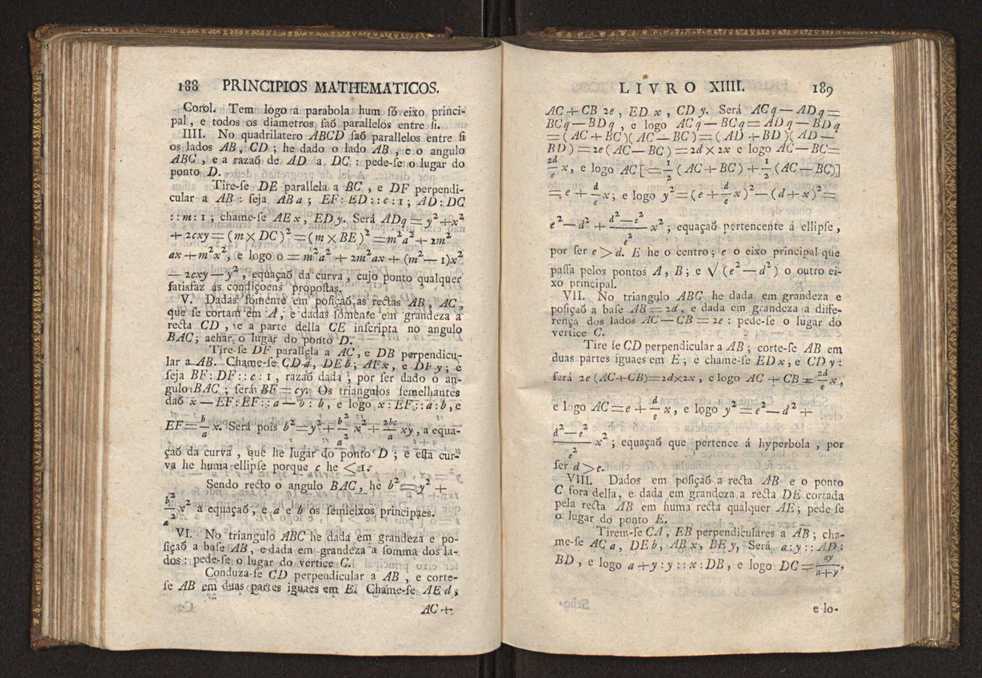 188 PRINCIPIOS MATHEMATICOS.
Corol. Tem logo a parabola hum ſó eixo princi-
pal, e todos os diametros ſaõ parallelos entre ſi.
IIII. No quadrilatero ABCD ſaõ parallelos entre ſi
os lados AB, CD; he dado o lado AB, e o angulo
ABC, e a razaõ de AD a DC: pede-ſe o lugar do
ponto D.
Tire-ſe DE parallela a BC, e DF perpendi-
cular a AB: ſeja AB a; EF: ED:: c: 1; AD: DC
:: m: 1; chame-ſe AE x, ED y. Será ADq = y² + x²
+ 2cxy = (m × DC)² = (m × BE)² = m²a² + 2m²
ax + m²x², e logo 0 = m²a² + 2m²ax + (m² — 1)x²
— 2cxy — y², equaçaõ da curva, cujo ponto qualquer
ſatisfaz as condiçoens propoſtas.
V. Dadas ſómente em poſiçaõ as rectas AB, AC,
que ſe cortam em A, e dadas ſómente em grandeza a
recta CD, e a parte della CE inſcripta no angulo
BAC; achar o lugar do ponto D.
Tire-ſe DF parallela a AC, e DB perpendicu-
lar a AB. Chame-ſe CD a, DE b; AF x, e DF y; e
ſeja BF: DF:: c: 1, razaõ dada, por ſer dado o an-
gulo BAC; ſerá BF = cy. Os triangulos ſemelhantes
daõ x — EF: EF:: a — b: b, e logo x: EF:: a: b, e
EF = b/a x. Será pois b² = y² + b²/a² x² + 2bc/a xy, a equa-
çaõ da curva, que he lugar do ponto D; e eſta cur-
va he huma ellipſe porque c he < 1.
Sendo recto o angulo BAC, he b² = y² +
b²/a² x² a equaçaõ, e a e b os ſemieixos principaes.
VI. No triangulo ABC he dada em grandeza e po-
ſiçaõ a baſe AB, e dada em grandeza a ſomma dos la-
dos: pede-ſe o lugar do vertice C.
Conduza-ſe CD perpendicular a AB, e corte-
ſe AB em duas partes iguaes em E. Chame-ſe AE d,
AC +
LIVRO XIIII. 189
AC + CB 2e, ED x, CD y. Será ACq — ADq =
BCq — BDq, e logo ACq — BCq = ADq — BDq
= (AC + BC)(AC — BC) = (AD + BD)(AD —
BD) = 2e(AC — BC) = 2d × 2x e logo AC — BC =
2d/e x, e logo AC [= 1/2 (AC + BC) + 1/2 (AC — BC)]
= e + d/e x; e logo y² = (e + d/e x)² — (d + x)² =
e² — d² + d² — e²/e² x²; equaçaõ pertencente á ellipſe,
por ſer e > d. E he o centro; e o eixo principal que
paſſa pelos pontos A, B; e √(e² — d²) o outro ei-
xo principal.
VII. No triangulo ABC he dada em grandeza e
poſiçaõ a baſe AB = 2d, e dada em grandeza a diffe-
rença dos lados AC — CB = 2e: pede-ſe o lugar do
vertice C.
Tire ſe CD perpendicular a AB; corte-ſe AB em
duas partes iguaes em E; e chame-ſe ED x; e CD y:
ſerá 2e(AC + CB) = 2d × 2x, e logo AC + CB = 2d/e x,
e logo AC = e + d/e x, e logo y² = e² — d² +
d² — e²/e² x²; equaçaõ que pertence á hyperbola, por
ſer d > e.
VIII. Dados em poſiçaõ a recta AB e o ponto
C fora della, e dada em grandeza a recta DE cortada
pela recta AB em huma recta qualquer AE; pede ſe
o lugar do ponto E.
Tirem-ſe CA, EB perpendiculares a AB; cha-
me-ſe AC a, DE b, AB x, BE y, Será a: y:: AD:
BD, e logo a + y: y:: x: DB, e logo DC = ay/a + y,
e lo-